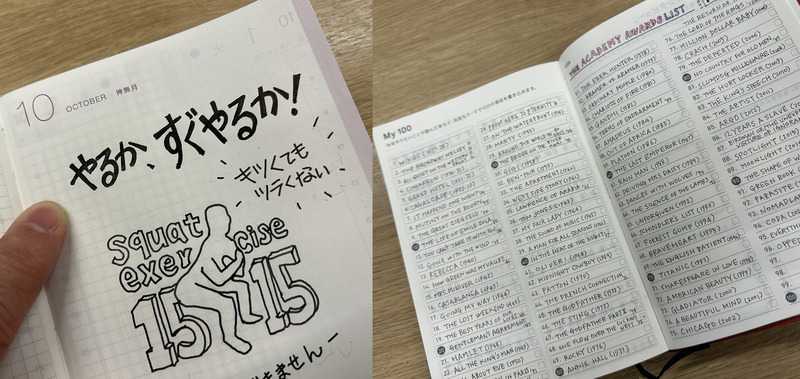 10 OCTOBER 神無月
やるか、すぐやるか!
キツくても
ツラくない
squat
exer cise
15 15
きませんー
My 100
1. WINGS (1927-28)
2. THE BROADWAY MELODY
4. CIMARRON
5. GRAND HOTEL
6. CAVALCADE
7. IT HAPPENED ONE NIGHT
8. MUTINY ON THE BOUNTY
9. THE GREAT ZIEGFELD
10. THE LIFE OF EMILE ZOLA
11. YOU CAN'T TAKE IT WITH YOU
12. GONE WITH THE WIND
13. REBECCA (1940)
14. HOW GREEN WAS MY VALLEY
15. MRS. MINIVER (1942)
16. CASABLANCA (1943)
17. GOING MY WAY (1944)
18. THE LOST WEEKEND (1945)
19. THE BEST YEARS OF OUR LIVES
20. GENTLEMAN'S AGREEMENT
21. HAMLET (1948)
22. ALL THE KING'S MEN (1949)
ALL ABOUT EVE (1950)
26. FROM HERE TO ETERNITY
27. ON THE WATERFRONT (1954)
28. MARTY (1955)
30. THE BRIDGE ON THE RIVER
31. GIGI (1958)
32. BEN-HUR (1959)
33. THE APARTMENT (1960)
34. WEST SIDE STORY (1961)
35. LAWRENCE OF ARABIA
36. TOM JONES (1963)
37. MY FAIR LADY (1964)
38. THE SOUND OF MUSIC (1965)
39. A MAN FOR ALL SEASONS
40. IN THE HEAT OF THE NIGHT
41. OLIVER! (1968)
42. MIDNIGHT COWBOY (1969)
43. PATTON (1970)
44. THE FRENCH CONNECTION
45. THE GODFATHER (1972)
46. THE STING (1973)
47. THE GODFATHER PART II
48. ONE FLEW OVER THE
49. ROCKY (1976)
50. ANNIE HALL (1977)
THE ACADEMY AWARDS LIST
51. THE DEER HUNTER (1978)
52. KRAMER VS. KRAMER (1979)
53. ORDINARY PEOPLE (1980)
54. CHARIOTS OF FIRE (1981)
55. GANDHI (1982)
56. TERMS OF ENDEARMENT
57. AMADEUS (1984)
58. OUT OF AFRICA (1985)
59. PLATOON (1986)
60. THE LAST EMPEROR (1987)
61. RAIN MAN (1988)
62. DRIVING MISS DAISY (1989)
63. DANCES WITH WOLVES
64. THE SILENCE OF THE LAMBS
65. UNFORGIVEN (1992)
66. SCHINDLER'S LIST (1993)
67. FORREST GUMP (1994)
68. BRAVEHEART (1995)
69. THE ENGLISH PATIENT (1996)
70. TITANIC (1997)
71. SHAKESPEARE IN LOVE (1998)
72. AMERICAN BEAUTY (1999)
73. GLADIATOR (2000)
74. A BEAUTIFUL MIND (2001)
75. CHICAGO (2002)
76. THE LORD OF THE RINGS
THE RETURN OF
77. MILLION DOLLAR BABY (2004)
78. CRASH (2005)
79. THE DEPARTED (2006)
80. NO COUNTRY FOR OLD MEN
81. SLUMDOG MILLIONAIRE (2008)
82. THE HURT LOCKER
83. THE KING'S SPEECH (2010)
84. THE ARTIST (2011)
85. ARGO (2012)
86. 12 YEARS A SLAVE
SPOTLIGHT
MOONLIGHT
THE SHAPE OF WA
GREEN BOOK
PARASITE
NOMADLAND
CODA
EVERYTHIN
OPPE